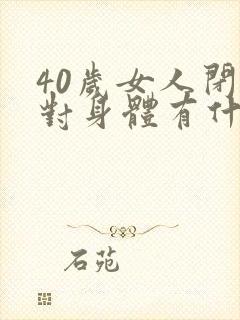 40歲女人閉
對身體有什
石苑